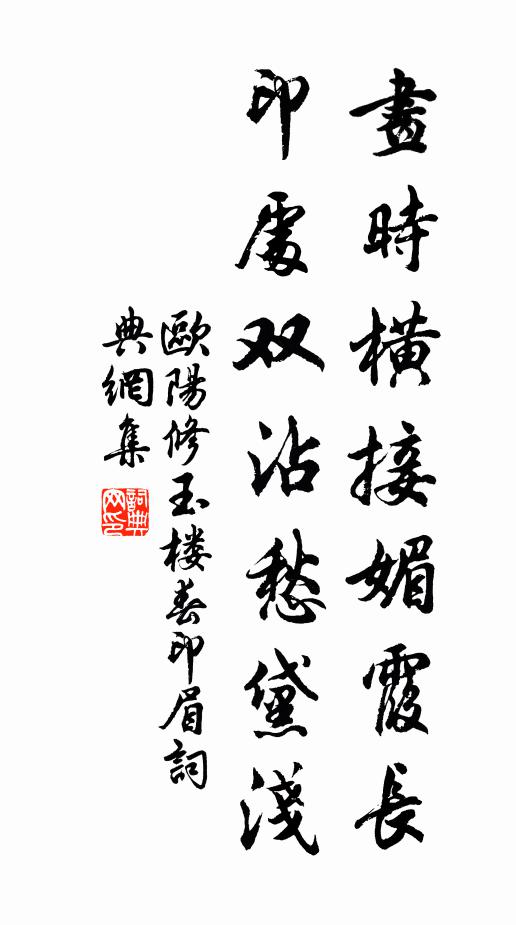 畫時橫接媚霞長
印處双沾愁黛淺
歐陽修玉楼春印眉詞
典網集
詞典網印